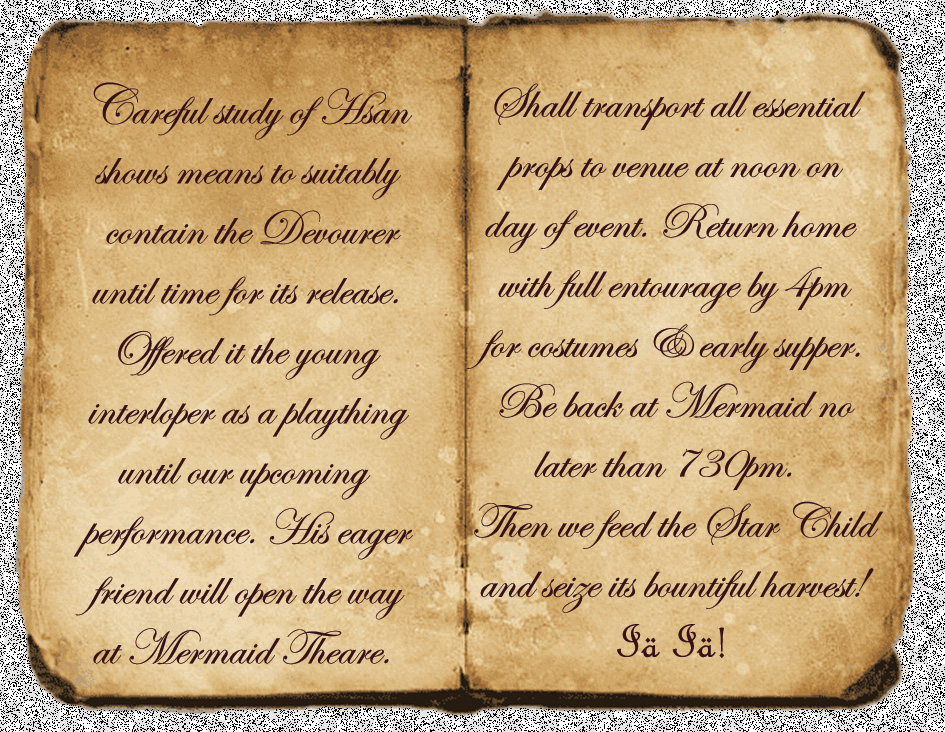 Careful study of Hsan
shows means to suitably
contain the Devourer
until time for its release.
Offered it the young
interloper as a plaything
until our upcoming
performance. His eager
friend will open the way
at Mermaid Theare.
Shall transport all essential
props to venue at noon on
day of event. Return home
with full entourage by 4pm
for costumes & early supper.
Be back at Mermaid no
later than 730pm.
Then we feed the Star Child
and seize its bountiful harvest!
Iä Iä!